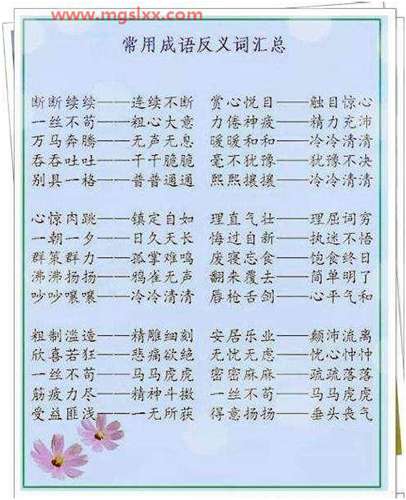 www.mgslxx.com
常用成语反义词汇总
断断续续——连续不断 赏心悦目——触目惊心
一丝不苟——粗心大意 力倦神疲——精力充沛
万马奔腾——无声无息 暖暖和和——冷冷清清
吞吞吐吐——干干脆脆 毫不犹豫——犹豫不决
别具一格——普普通通 熙熙攘攘——冷冷清清
心惊肉跳——镇定自如 理直气壮——理屈词穷
一朝一夕——日久天长 悔过自新——执迷不悟
群策群力——孤掌难鸣 废寝忘食——饱食终日
沸沸扬扬——鸦雀无声 翻来覆去——简单明了
吵吵嚷嚷——冷冷清清 唇枪舌剑——心平气和
粗制滥造——精雕细刻 安居乐业——颠沛流离
欣喜若狂——悲痛欲绝 无忧无虑——忧心忡忡
一丝不苟——马马虎虎 密密麻麻——疏疏落落
筋疲力尽——精神斗擞 一丝不苟——马马虎虎
受益匪浅——一无所获 得意扬扬——垂头丧气